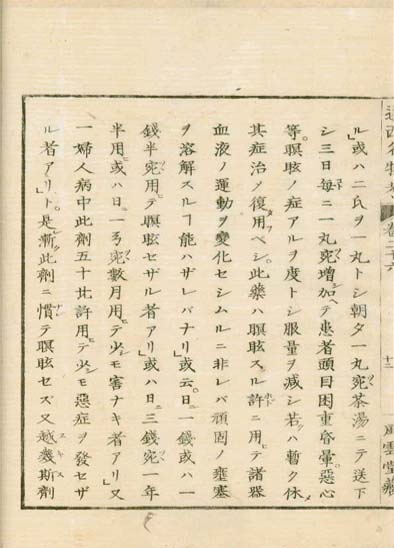 ル」或ハ二氏ヲ一丸トシ朝夕一丸宛茶湯ニテ送下
シ三日毎ニ一丸宛増加ヘテ患者頭目困重昏暈。惡心
等。瞑眩ノ症アルヲ度トシ服量ヲ減シ若クハ暫ク休
其症治メ復用フベシ。此藥ハ瞑眩スル許ニ用ヒテ諸器
血液ノ運動ヲ變化セシムルニ非レバ頑固ノ壅塞
ヲ溶解スルヿ能ハザレバナリ」或云。日ニ一錢或ハ一
錢半宛用ヒテ瞑眩セザル者アリ」或ハ日ニ三錢宛一年
半用ヒ或ハ日ニ一弓宛數月用ヒテ少シモ害ナキ者アリ」又
一婦人病中此劑五十比許用ヒテ少シモ惡症ヲ發セザ
ル者アリ」ト。是漸ク此劑ニ慣テ瞑眩セズ又越幾斯劑
風雲堂藏